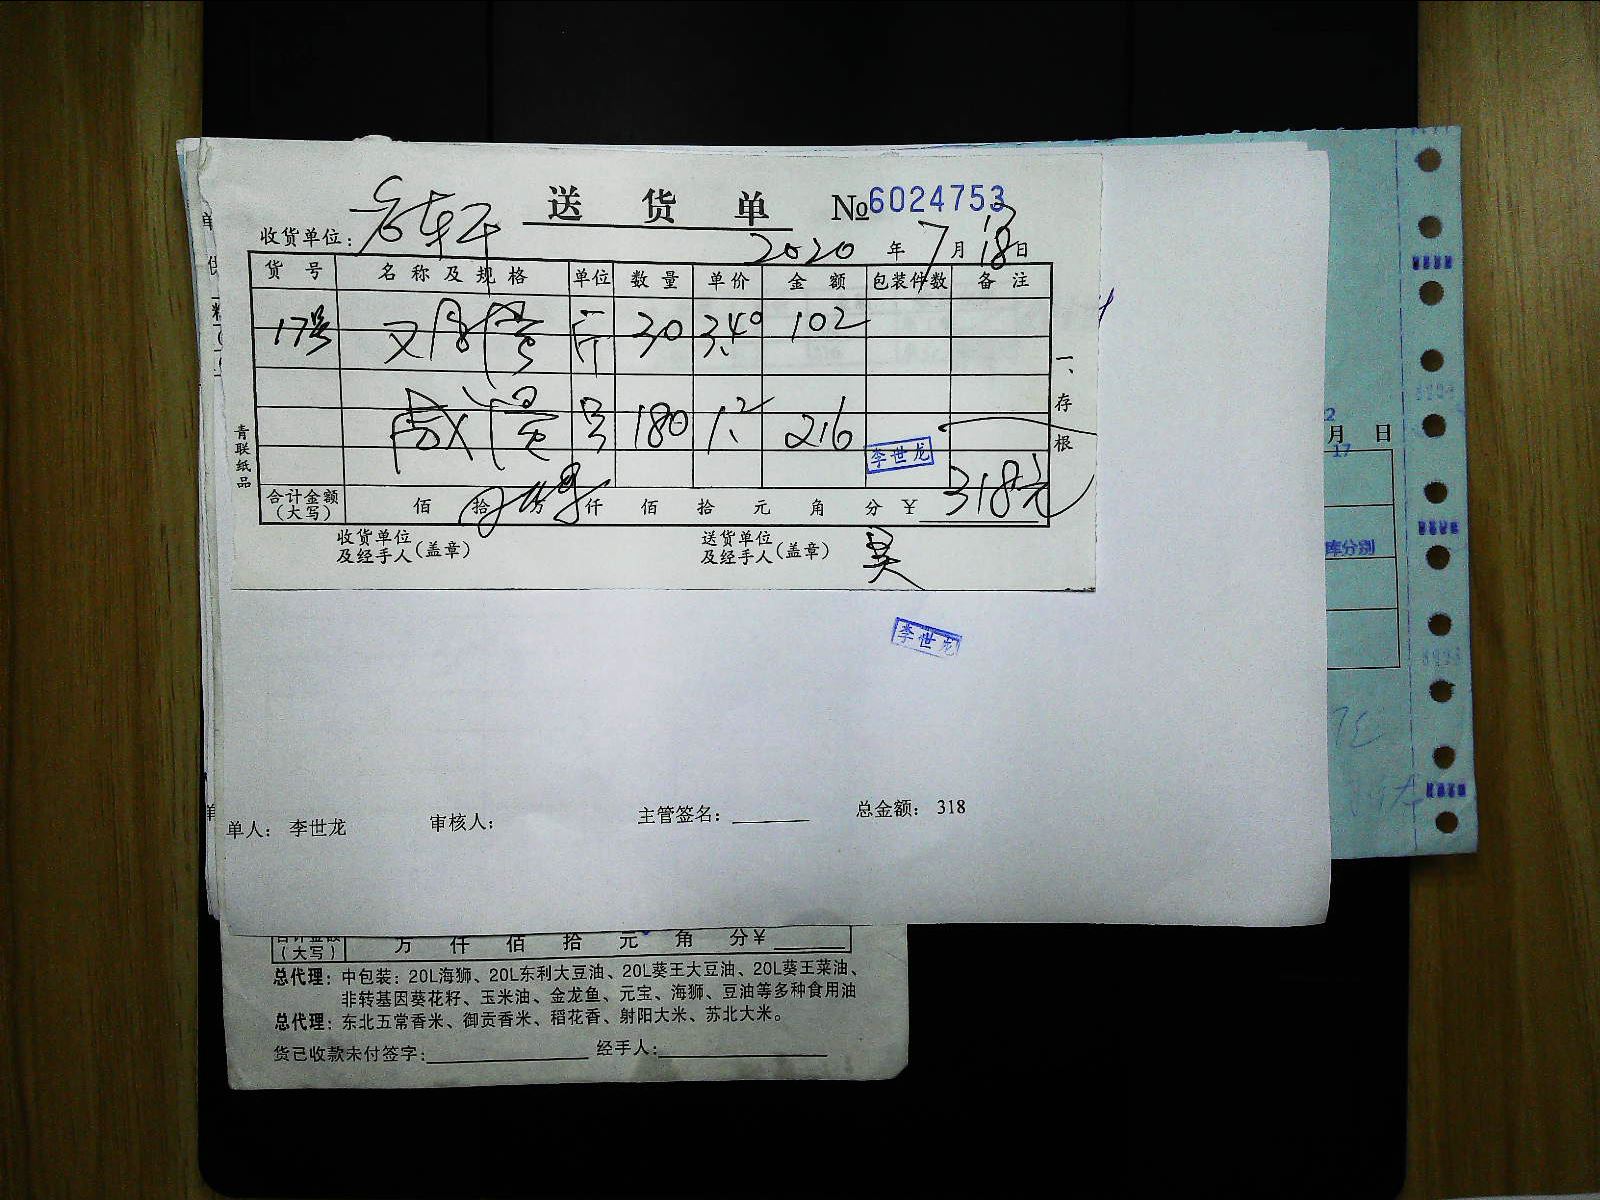 送货单 №6024753
收货单位:
2020年7月18日
货号 名称及规格 单位 数量 单价 金额 包装件数 备注
17号 斤 30 3.40 102
180 1.2 216
李世龙
合计金额(大写) 佰 拾 万 仟 佰 拾 元 角 分 ¥ 318元
收货单位及经手人(盖章) 送货单位及经手人(盖章) 吴
一、存根
青联纸品
李世龙
单人: 李世龙 审核人: 主管签名: 总金额: 318
月 日
17
库分别
合计金额(大写) 万 仟 佰 拾 元 角 分¥
总代理: 中包装: 20L海狮、20L东利大豆油、20L葵王大豆油、20L葵王菜油、
非转基因葵花籽、玉米油、金龙鱼、元宝、海狮、豆油等多种食用油
总代理: 东北五常香米、御贡香米、稻花香、射阳大米、苏北大米。
货已收款未付签字: 经手人: